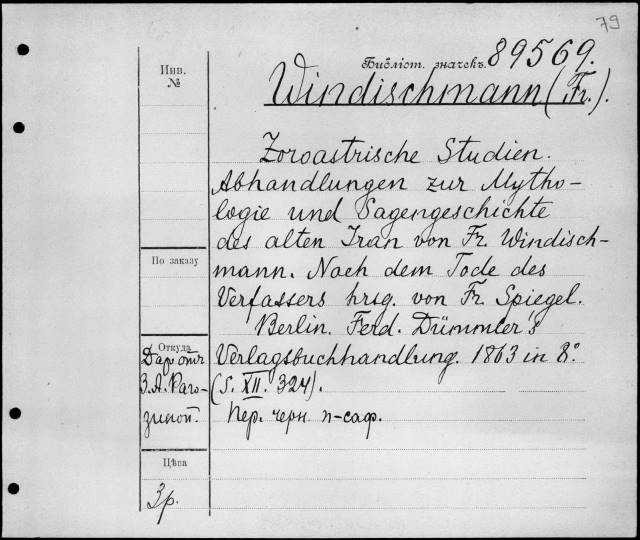 79
Библіот. значекъ. 89569.
Инв.
№
Windischmann (Fr.).
Zoroastrische Studien.
Abhandlungen zur Mytho-
logie und Sagengeschichte
des alten Iran von Fr. Windisch-
mann. Nach dem Tode des
Verfassers hrsg. von Fr. Spiegel.
Berlin. Ferd. Dümmler's
Verlagsbuchhandlung. 1863 in 8°.
(S. XII. 324).
Пер. черн. п-саф.
По заказу
Откуда
Дар отъ
З. А. Раго-
зиной.
Цѣна
3 р.